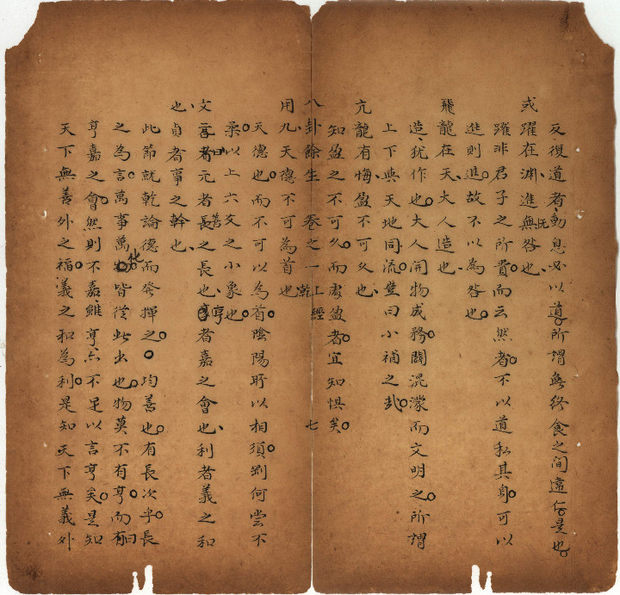 反復道者動息必以道所謂無終食之間違仁是也
或躍在淵進無咎也
躍非君子之所貴而云然者不以道私其身可以
進則進故不以為咎也
飛龍在天大人造也
造猶作也大人開物成務闢混濛而文明之所謂
上下與天地同流豈曰小補之哉
亢龍有悔盈不可久也
知盈之不可久而處盈者宜知懼矣
八卦餘生 卷之一 上經 乾 七
用九天德不可為首也
天德也而不可以為首陰陽所以相須剛何嘗不
柔以上六爻之小象也
文言曰元者善之長也亨者嘉之會也利者義之和
也貞者事之幹也
此節就乾論德而發揮之均善也有長次乎長
之為言萬事萬化皆從此出也物莫不有亨而有曰
亨嘉之會然則不嘉雖亨亦不足以言亨矣是知
天下無善外之福義之和為利是知天下無義外